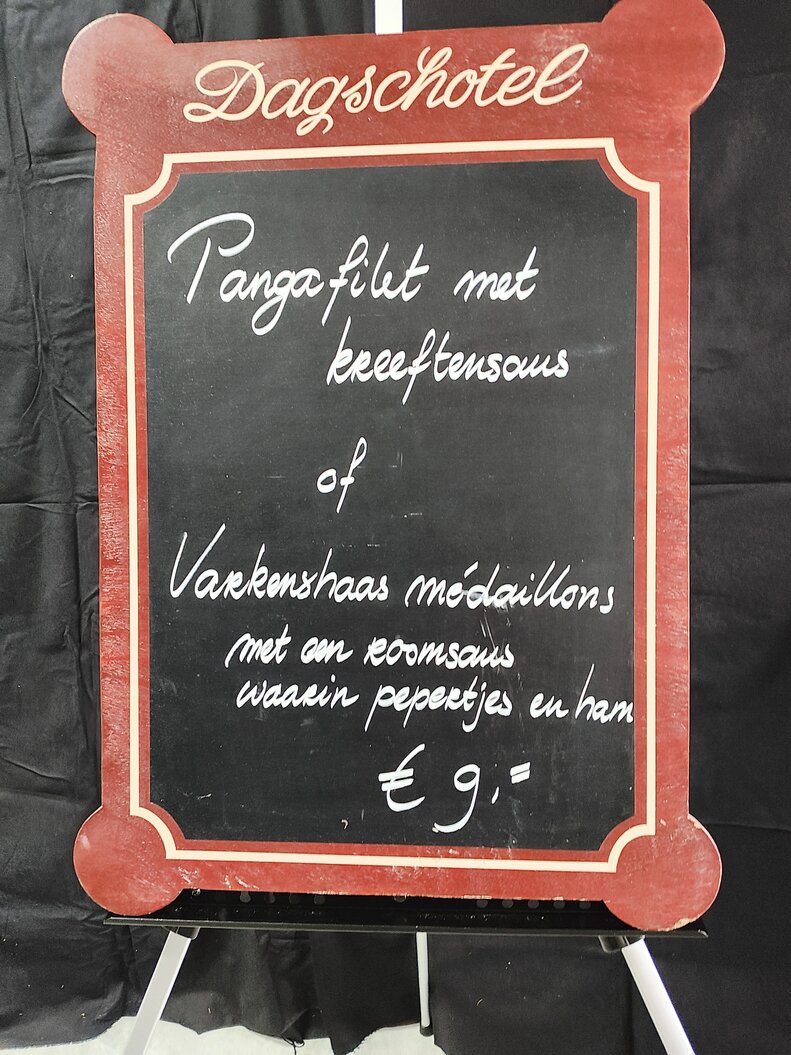 Dagschotel
Pangafilet met
kreeftensaus
of
Varkenshaas médaillons
met een roomsaus
waarin pepertjes en ham
€ 9,=